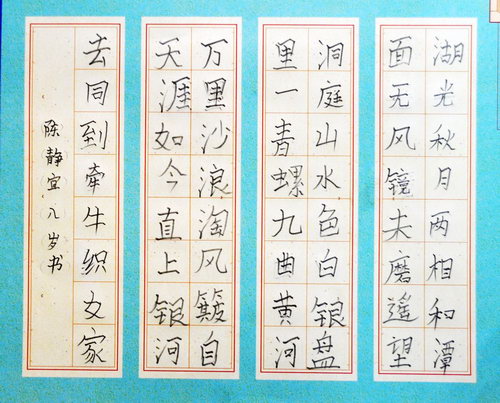 湖光秋月两相和潭
面无风镜未磨遥望
洞庭山水色白银盘
里一青螺九曲黄河
万里沙浪淘风簸自
天涯如今直上银河
去同到牵牛织女家
陈静宜八岁书